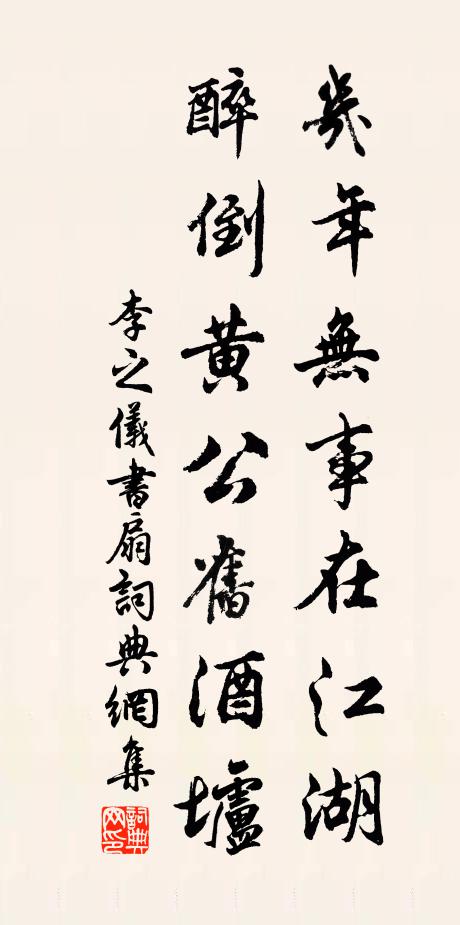 幾年無事在江湖
醉倒黃公舊酒壚
李之儀書扇詞典網集
詞典网印